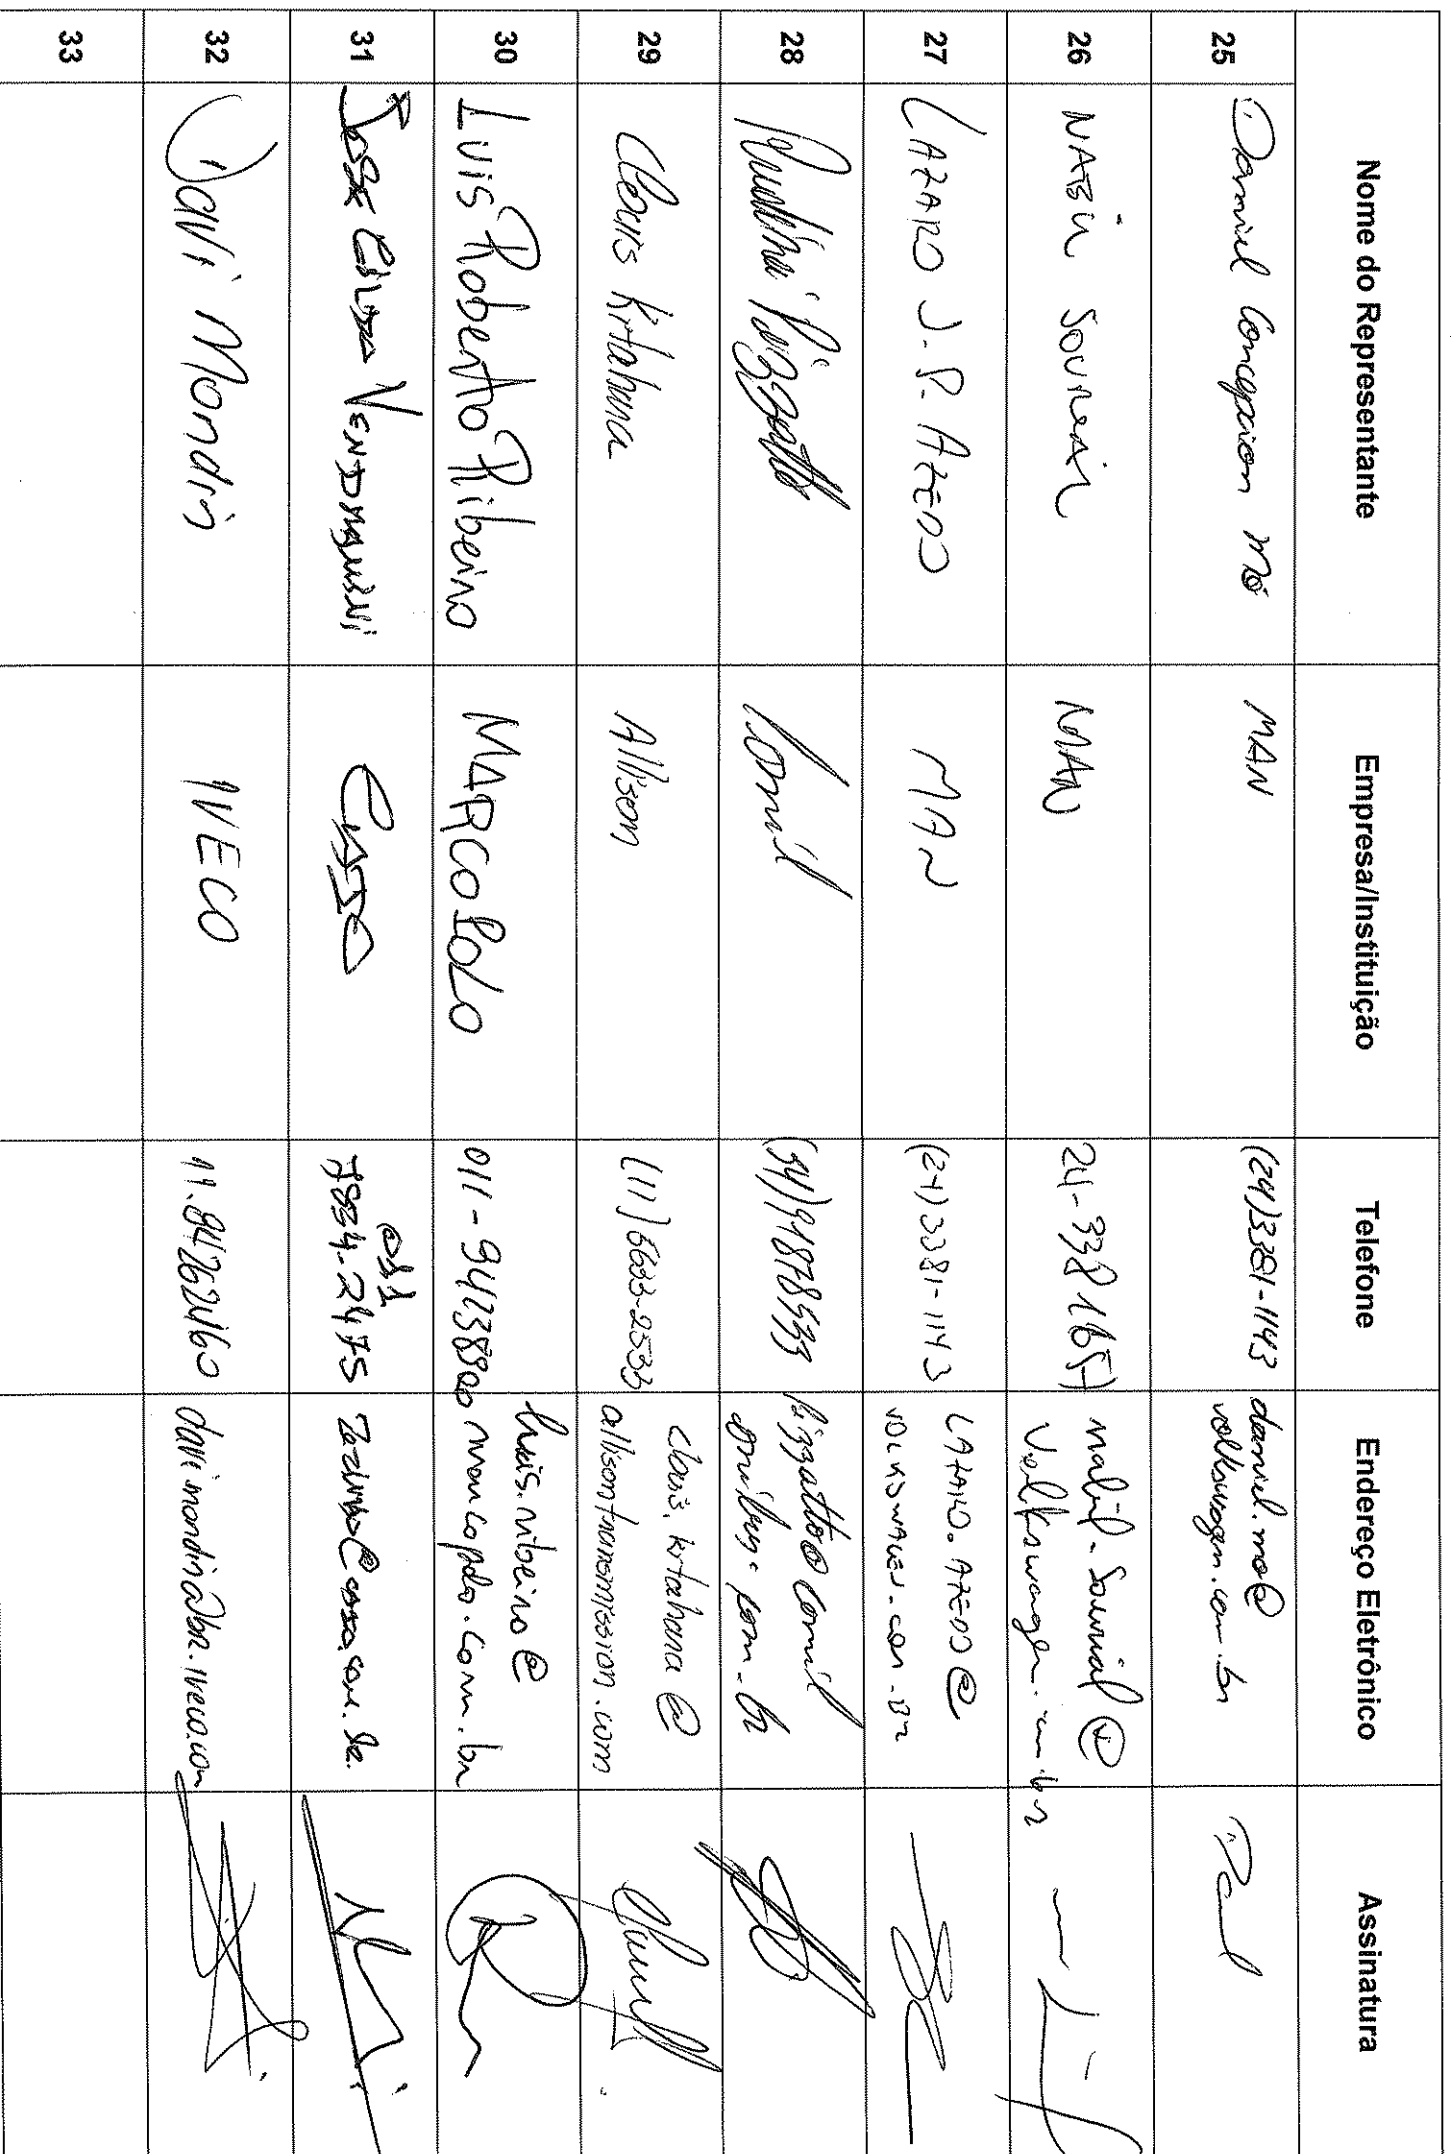 Nome do Representante Empresa/Instituição Telefone Endereço Eletrônico Assinatura
25 Daniel Concepcion Mó MAN (24)3381-1143 daniel.mo@
volkswagen.com.br
26 NABIL SOURIAL MAN 24-3381651 nabil.Sourial@
Volkswagen.com.br
27 LAZARO J.P. AZEDO MAN (24)3381-1143 LAZARO.AZEDO@
VOLKSWAGEN.COM.BR
28 Comil (54)91878533 pizzatto@comil
onibus.com.br
29 Clovis Kitahara Allison (11)5633-2533 clovis.kitahara@
allisontransmission.com
30 Luis Roberto Ribeiro MARCOPOLO 011-94238900 luis.ribeiro@
marcopolo.com.br
31 7884-2475
32 Davi Mondin IVECO 11.84262460 davi.mondin@br.iveco.com
33